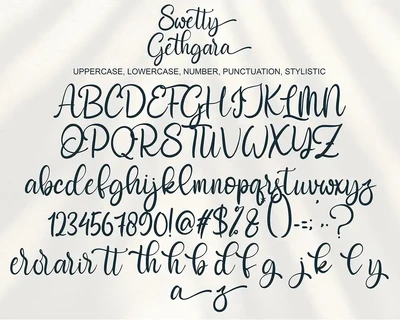 Swetty
Gethgara
UPPERCASE, LOWERCASE, NUMBER, PUNCTUATION, STYLISTIC
ABCDEFGHIJKLMN
OPQRSTUVWXYZ
abcdefghijklmnopqrstuvwxyz
1234567890!@#$%&()-=:;..?
erorarir tt th h b d f g j k l y
a z